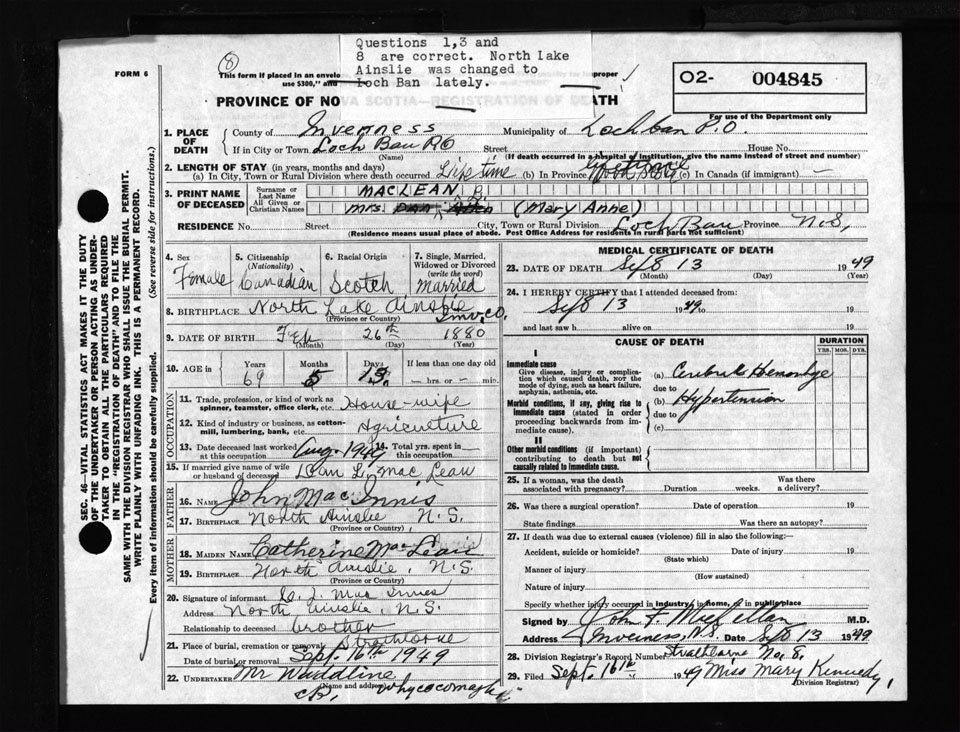 Questions 1,3 and
8 are correct. North Lake
Ainslie was changed to
Loch Ban lately.
FORM 6
8
This form if placed in an envelo
use $300," and
improper
O2- 004845
For use of the Department only
PROVINCE OF NOVA SCOTIA—REGISTRATION OF DEATH
1. PLACE OF DEATH
County of Inverness Municipality of Loch ban P.O.
If in City or Town Loch Ban P.O Street House No.
(Name) (If death occurred in a hospital or institution, give the name instead of street and number)
2. LENGTH OF STAY (in years, months and days)
(a) In City, Town or Rural Division where death occurred Life time (b) In Province life time (c) In Canada (if immigrant) —
3. PRINT NAME OF DECEASED
Surname or Last Name MACLEAN, B.
All Given or Christian Names Mrs. Dan (Mary Anne)
RESIDENCE No. Street City, Town or Rural Division Loch Ban Province N.S,
(Residence means usual place of abode. Post Office Address for residents in rural parts not sufficient)
4. Sex Female
5. Citizenship (Nationality) Canadian
6. Racial Origin Scotch
7. Single, Married, Widowed or Divorced (write the word) Married
8. BIRTHPLACE North Lake Ainslie Inv. Co.
(Province or Country)
9. DATE OF BIRTH Feb 26th 1880
(Month) (Day) (Year)
10. AGE in Years 69 Months Days If less than one day old — hrs. or — min.
OCCUPATION
11. Trade, profession or kind of work as spinner, teamster, office clerk, etc. House-wife
12. Kind of industry or business, as cotton-mill, lumbering, bank, etc. Agriculture
13. Date deceased last worked at this occupation Aug. 1949
14. Total yrs. spent in this occupation —
15. If married give name of wife or husband of deceased Dan MacLean
FATHER
16. NAME John Mac Innis
17. BIRTHPLACE North Ainslie, N.S.
(Province or Country)
MOTHER
18. MAIDEN NAME Catherine Mac Lean
19. BIRTHPLACE North Ainslie, N.S.
(Province or Country)
20. Signature of informant Mac Innes
Address North Ainslie, N.S.
Relationship to deceased brother
21. Place of burial, cremation or removal Strathlorne
Date of burial or removal Sept. 16th 1949
22. UNDERTAKER Mr Waddline
(Name and address) Whycocomagh
MEDICAL CERTIFICATE OF DEATH
23. DATE OF DEATH Sep 13 1949
(Month) (Day) (Year)
24. I HEREBY CERTIFY that I attended deceased from:
Sep 13 1949 to 19
and last saw h alive on 19
CAUSE OF DEATH
DURATION
YRS. MOS. DYS.
I
Immediate cause
Give disease, injury or complication which caused death, not the mode of dying, such as heart failure, asphyxia, asthenia, etc.
(a) Cerebral Hemorrhage
due to
Morbid conditions, if any, giving rise to immediate cause (stated in order proceeding backwards from immediate cause).
(b) Hypertension
due to
(c)
II
Other morbid conditions (if important) contributing to death but not causally related to immediate cause.
25. If a woman, was the death associated with pregnancy? Duration weeks. Was there a delivery?
26. Was there a surgical operation? Date of operation 19
State findings Was there an autopsy?
27. If death was due to external causes (violence) fill in also the following:—
Accident, suicide or homicide? Date of injury 19
(State which)
Manner of injury
(How sustained)
Nature of injury
Specify whether injury occurred in industry, in home, or in public place
Signed by John F MacLellan M.D.
Address Inverness, N.S. Date Sep 13 1949
28. Division Registrar's Record Number Strathlorne No. 8.
29. Filed Sept. 16th 1949 Miss Mary Kennedy,
(Division Registrar)
SEC. 46—VITAL STATISTICS ACT MAKES IT THE DUTY
OF THE UNDERTAKER OR PERSON ACTING AS UNDER-
TAKER TO OBTAIN ALL THE PARTICULARS REQUIRED
IN THE "REGISTRATION OF DEATH" AND TO FILE THE
SAME WITH THE DIVISION REGISTRAR WHO SHALL ISSUE THE BURIAL PERMIT.
WRITE PLAINLY WITH UNFADING INK. THIS IS A PERMANENT RECORD.
Every item of information should be carefully supplied. (See reverse side for instructions.)